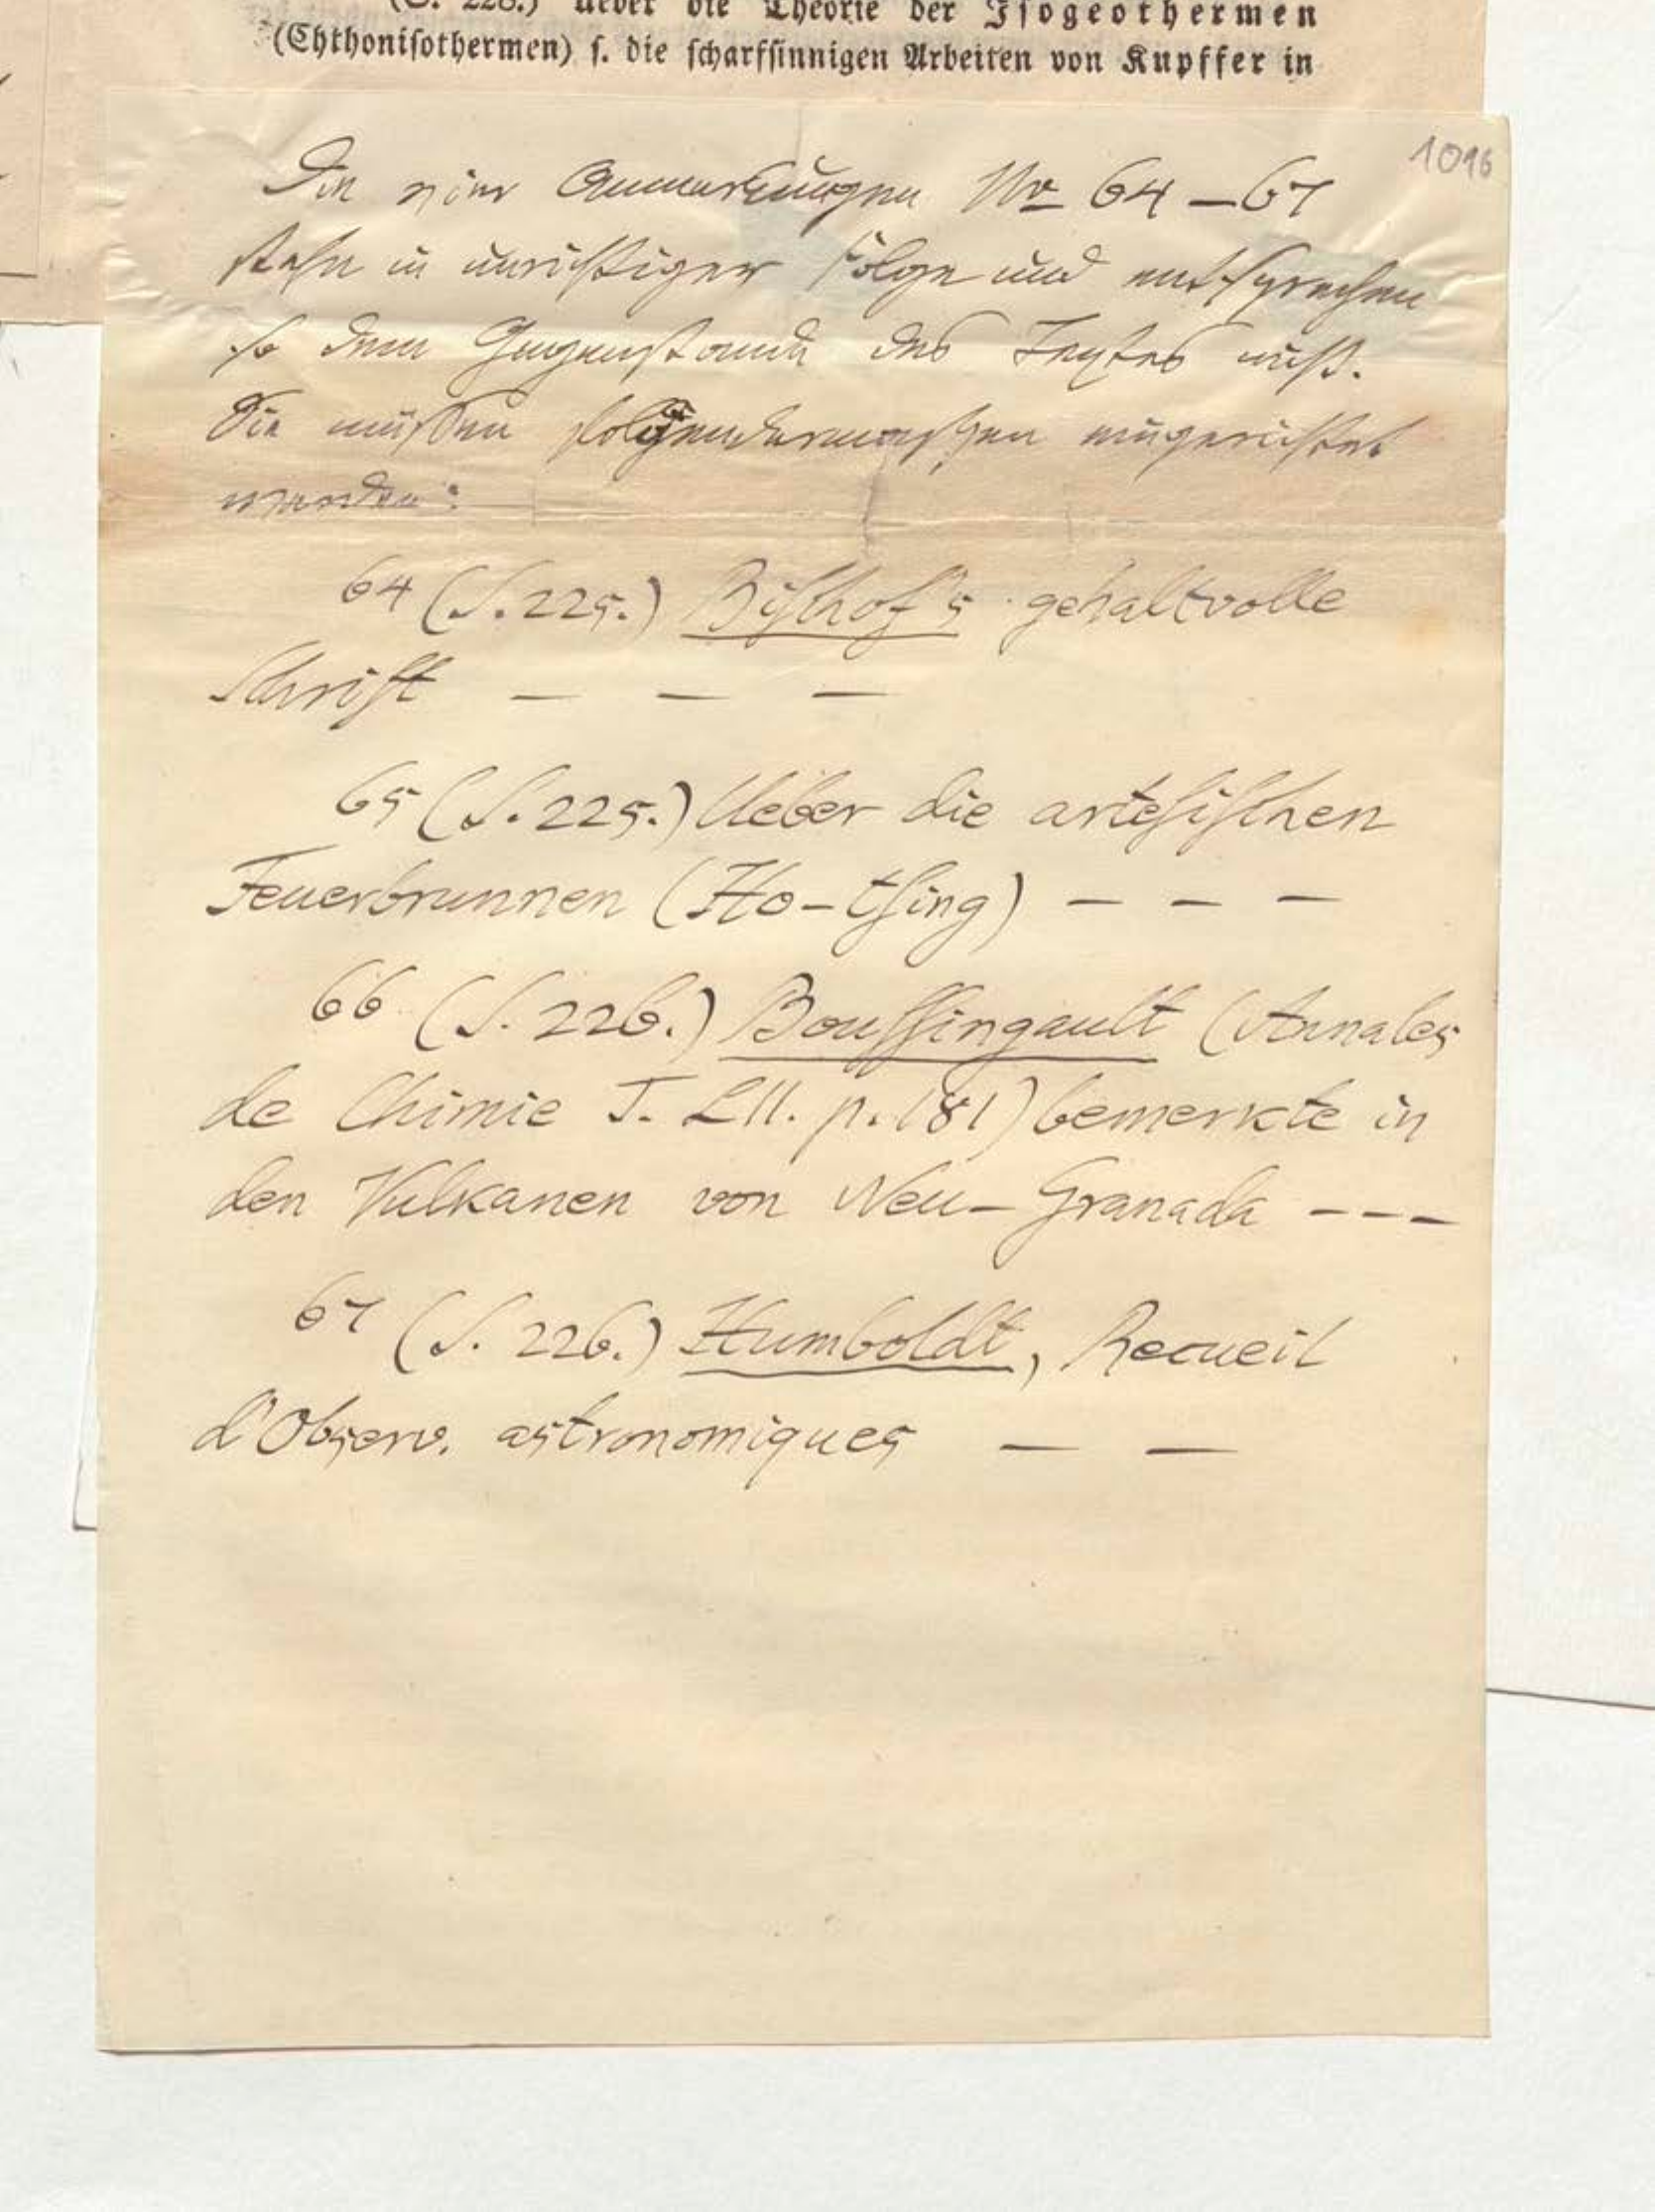 (S. 228.) Ueber die Theorie der Isogeothermen
(Chthonisothermen) s. die scharfsinnigen Arbeiten von Kupffer in
1096
Die vier Anmerkungen Nr 64 – 67
stehn in unrichtiger Folge und entsprechen
so dem Gegenstande des Textes nicht.
Sie müssen folgendermassen eingerichtet
werden:
64 (S. 225.) Bischof's gehaltvolle
Schrift — — —
65 (S. 225.) Ueber die artesischen
Feuerbrunnen (Ho-tsing) — — —
66 (S. 226.) Boussingault (Annales
de Chimie T. LII. p. 181) bemerkte in
den Vulkanen von Neu-Granada ---
67 (S. 226.) Humboldt, Recueil
d'Observ. astronomiques — —